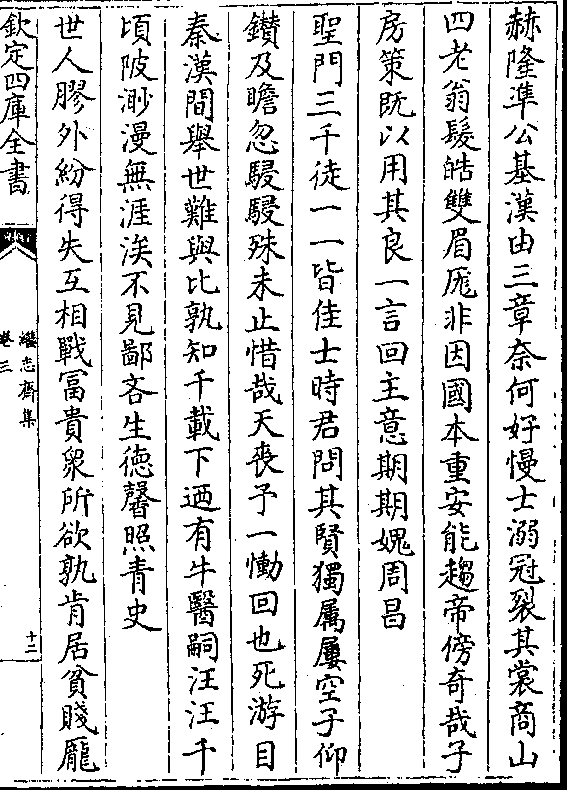 赫隆準公基漢由三章奈何好慢士溺冠裂其裳商山
四老翁髮皓雙眉厖非因國本重安能趨帝傍奇哉子
房策既以用其良一言回主意期期媿周昌
聖門三千徒一一皆佳士時君問其賢獨屬屢空子仰
鑚及瞻忽駸駸殊未止惜哉天喪予一慟回也死游目
秦漢間舉世難與比孰知千載下迺有牛醫嗣汪汪千
頃陂渺漫無涯涘不見鄙吝生徳馨照青史
世人膠外紛得失互相戰冨貴衆所欲孰肯居貧賤龎
欽定四庫全書
繼志齋集
卷三
十二